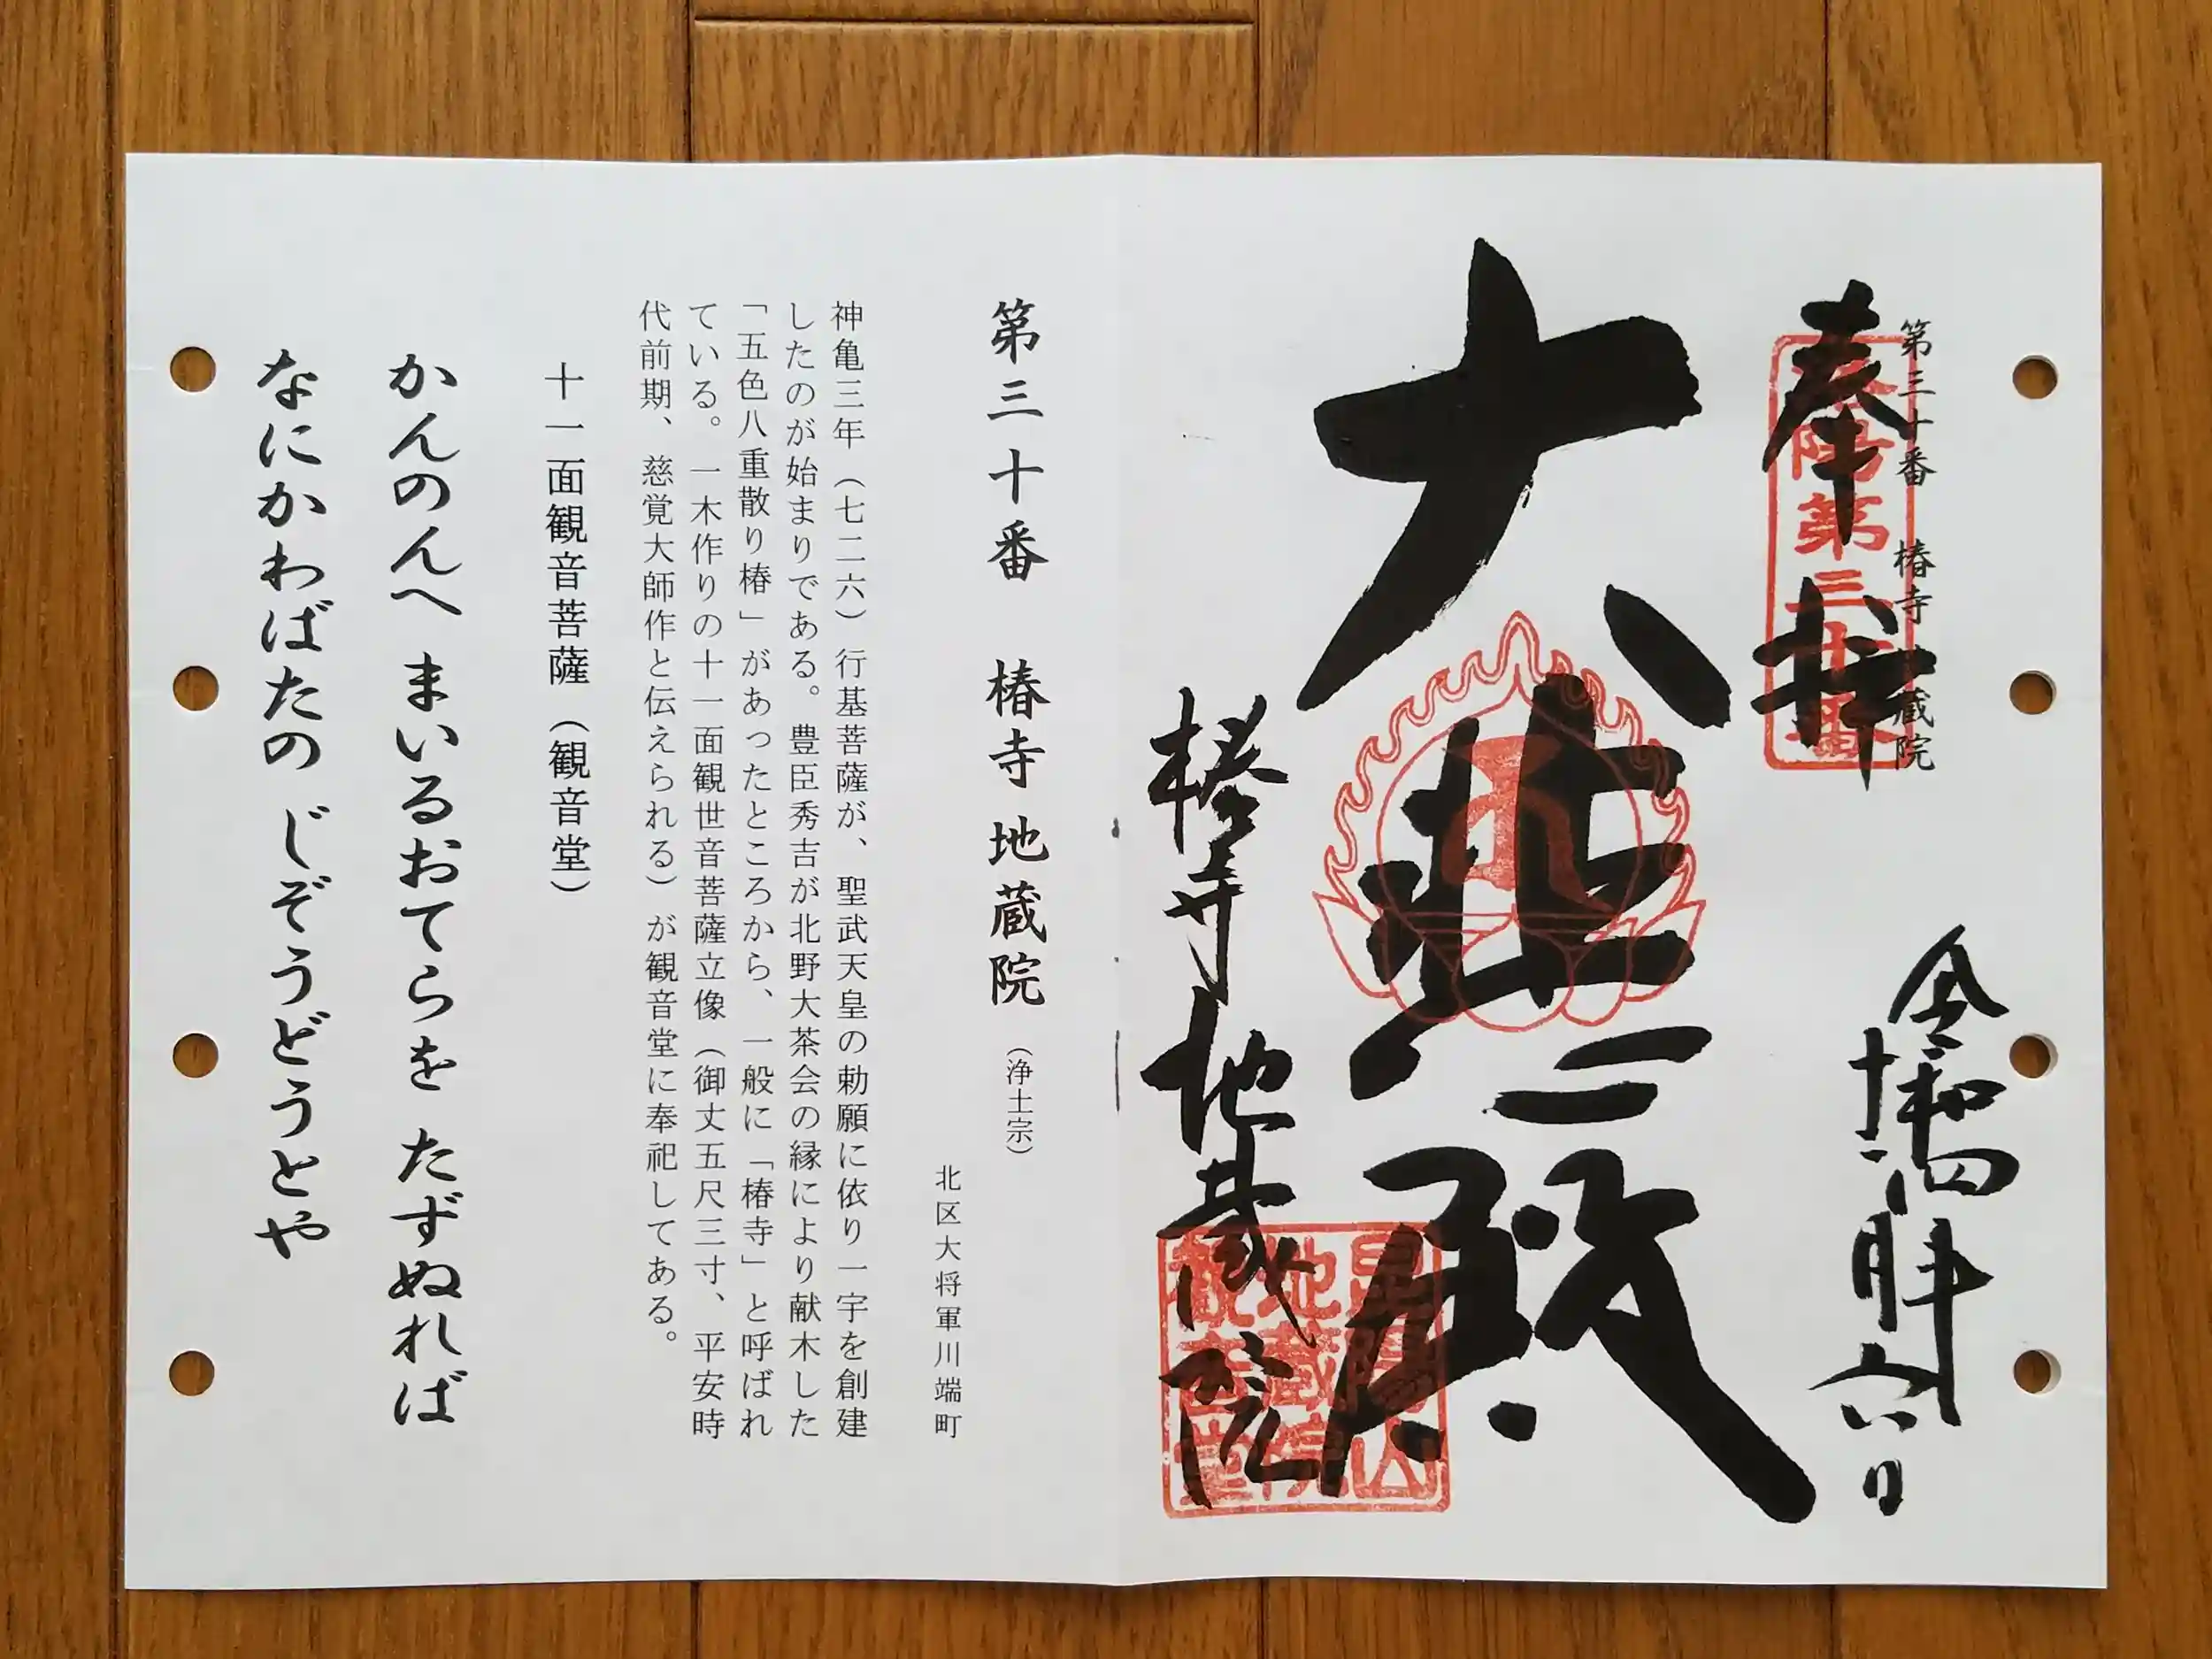 第三十番 椿寺 地蔵院
奉拝
洛陽第三十番
令和四年
十一月六日
大悲殿
椿寺地蔵院
第三十番 椿寺 地蔵院 （浄土宗）
北区大将軍川端町
神亀三年（七二六）行基菩薩が、聖武天皇の勅願に依り一宇を創建
したのが始まりである。豊臣秀吉が北野大茶会の縁により献木した
「五色八重散り椿」があったところから、一般に「椿寺」と呼ばれ
ている。一木作りの十一面観世音菩薩立像（御丈五尺三寸、平安時
代前期、慈覚大師作と伝えられる）が観音堂に奉祀してある。
十一面観音菩薩（観音堂）
かんのんへ まいるおてらを たずぬれば
なにかわばたの じぞうどうとや